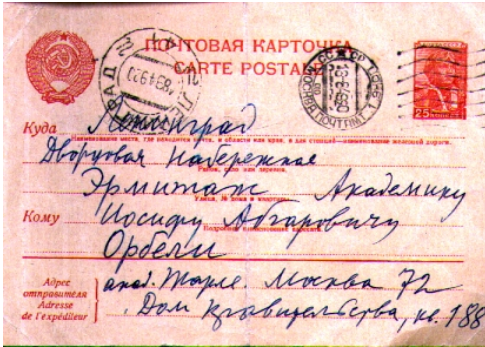 ПОЧТОВАЯ КАРТОЧКА
CARTE POSTALE
25
Куда Ленинград
Наименование места, где находится почта, и области или края, а для станций—наименование железной дороги.
Дворцовая Набережная
Район, село или деревня.
Эрмитаж Академику
Улица, № дома и квартиры.
Кому Иосифу Абгаровичу
Подробное наименование адресата.
Орбели
Адрес
отправителя
Adresse
de l'expéditeur
акад. Тарле. Москва 72
Дом Правительства, кв. 188